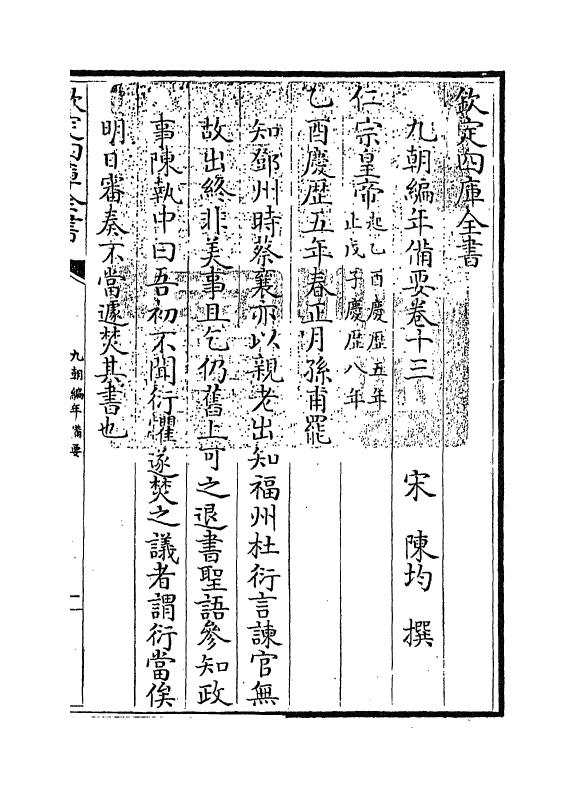 欽定四庫全書
九朝編年備要卷十三
宋　陳均　撰
仁宗皇帝
起乙酉慶歴五年
止戊子慶歴八年
乙酉慶歴五年春正月孫甫罷
知鄧州時蔡襄亦以親老出知福州杜衍言諫官無
故出終非美事且乞仍舊上可之退書聖語參知政
事陳執中曰吾初不聞衍懼遂焚之議者謂衍當俟
明日審奏不當遽焚其書也
欽定四庫全書
九朝編年備要
一